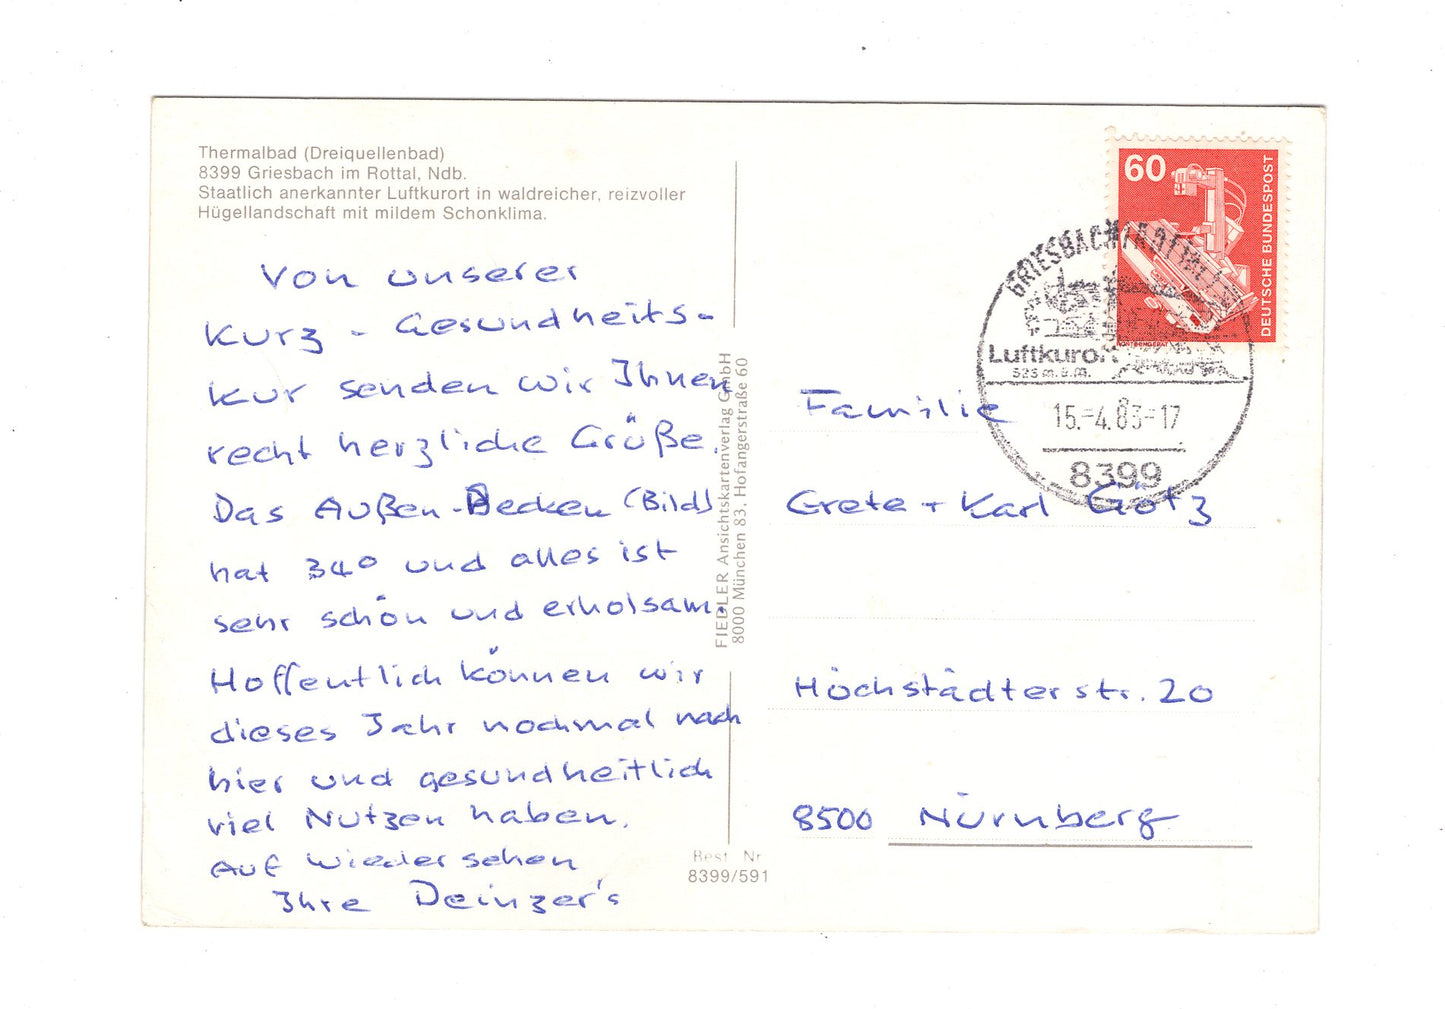 Thermalbad (Dreiquellenbad)
8399 Griesbach im Rottal, Ndb.
Staatlich anerkannter Luftkurort in waldreicher, reizvoller
Hügellandschaft mit mildem Schonklima.
Von unserer
Kurz - Gesundheits-
Kur senden wir Ihnen
recht herzliche Grüße.
Das Außen-Becken (Bild)
hat 34° und alles ist
sehr schön und erholsam.
Hoffentlich können wir
dieses Jahr nochmal nach
hier und gesundheitlich
viel Nutzen haben.
Auf Wiedersehen
Ihre Deinzer's
FIEDLER Ansichtskartenverlag GmbH
8000 München 83, Hofangerstraße 60
Best Nr
8399/591
60
DEUTSCHE BUNDESPOST
RÖNTGENGERÄT
GRIESBACH i ROTTAL
Luftkurort
525 m.ü.m.
15.-4.83-17
8399
Familie
Grete + Karl Götz
Höchstädterstr. 20
8500 Nürnberg